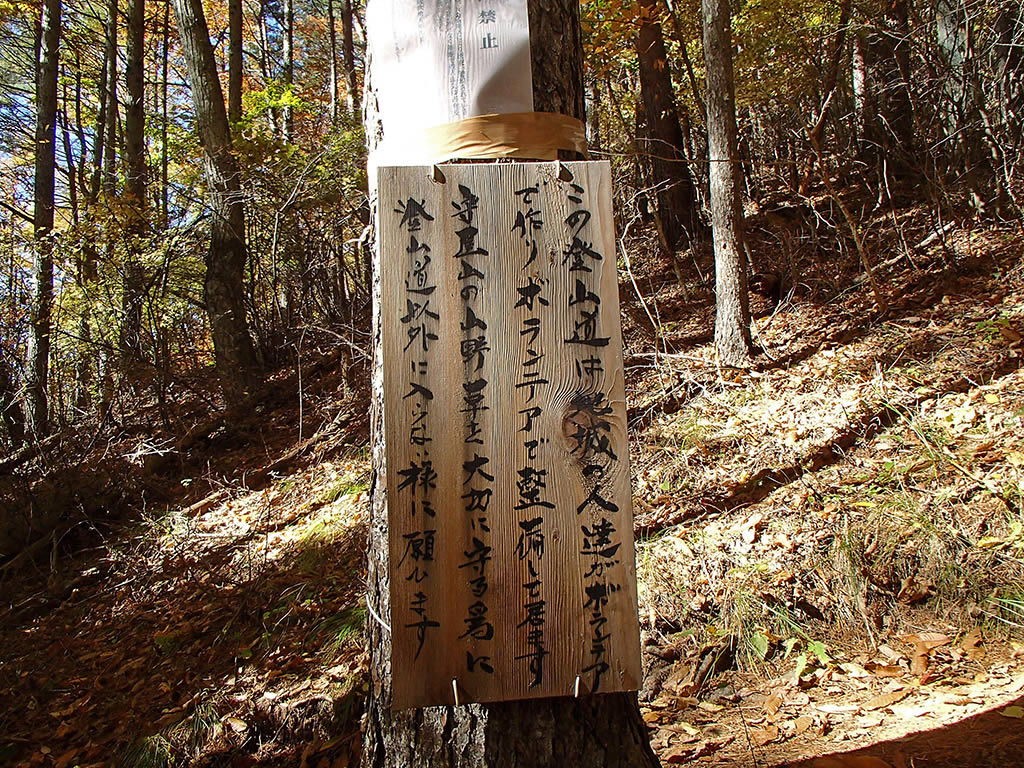 禁止
この登山道は地域の人達がボランテア
で作りボランテアで整備して居ます
守屋山の山野草を大切に守る為に
登山道以外に入らない様に願います